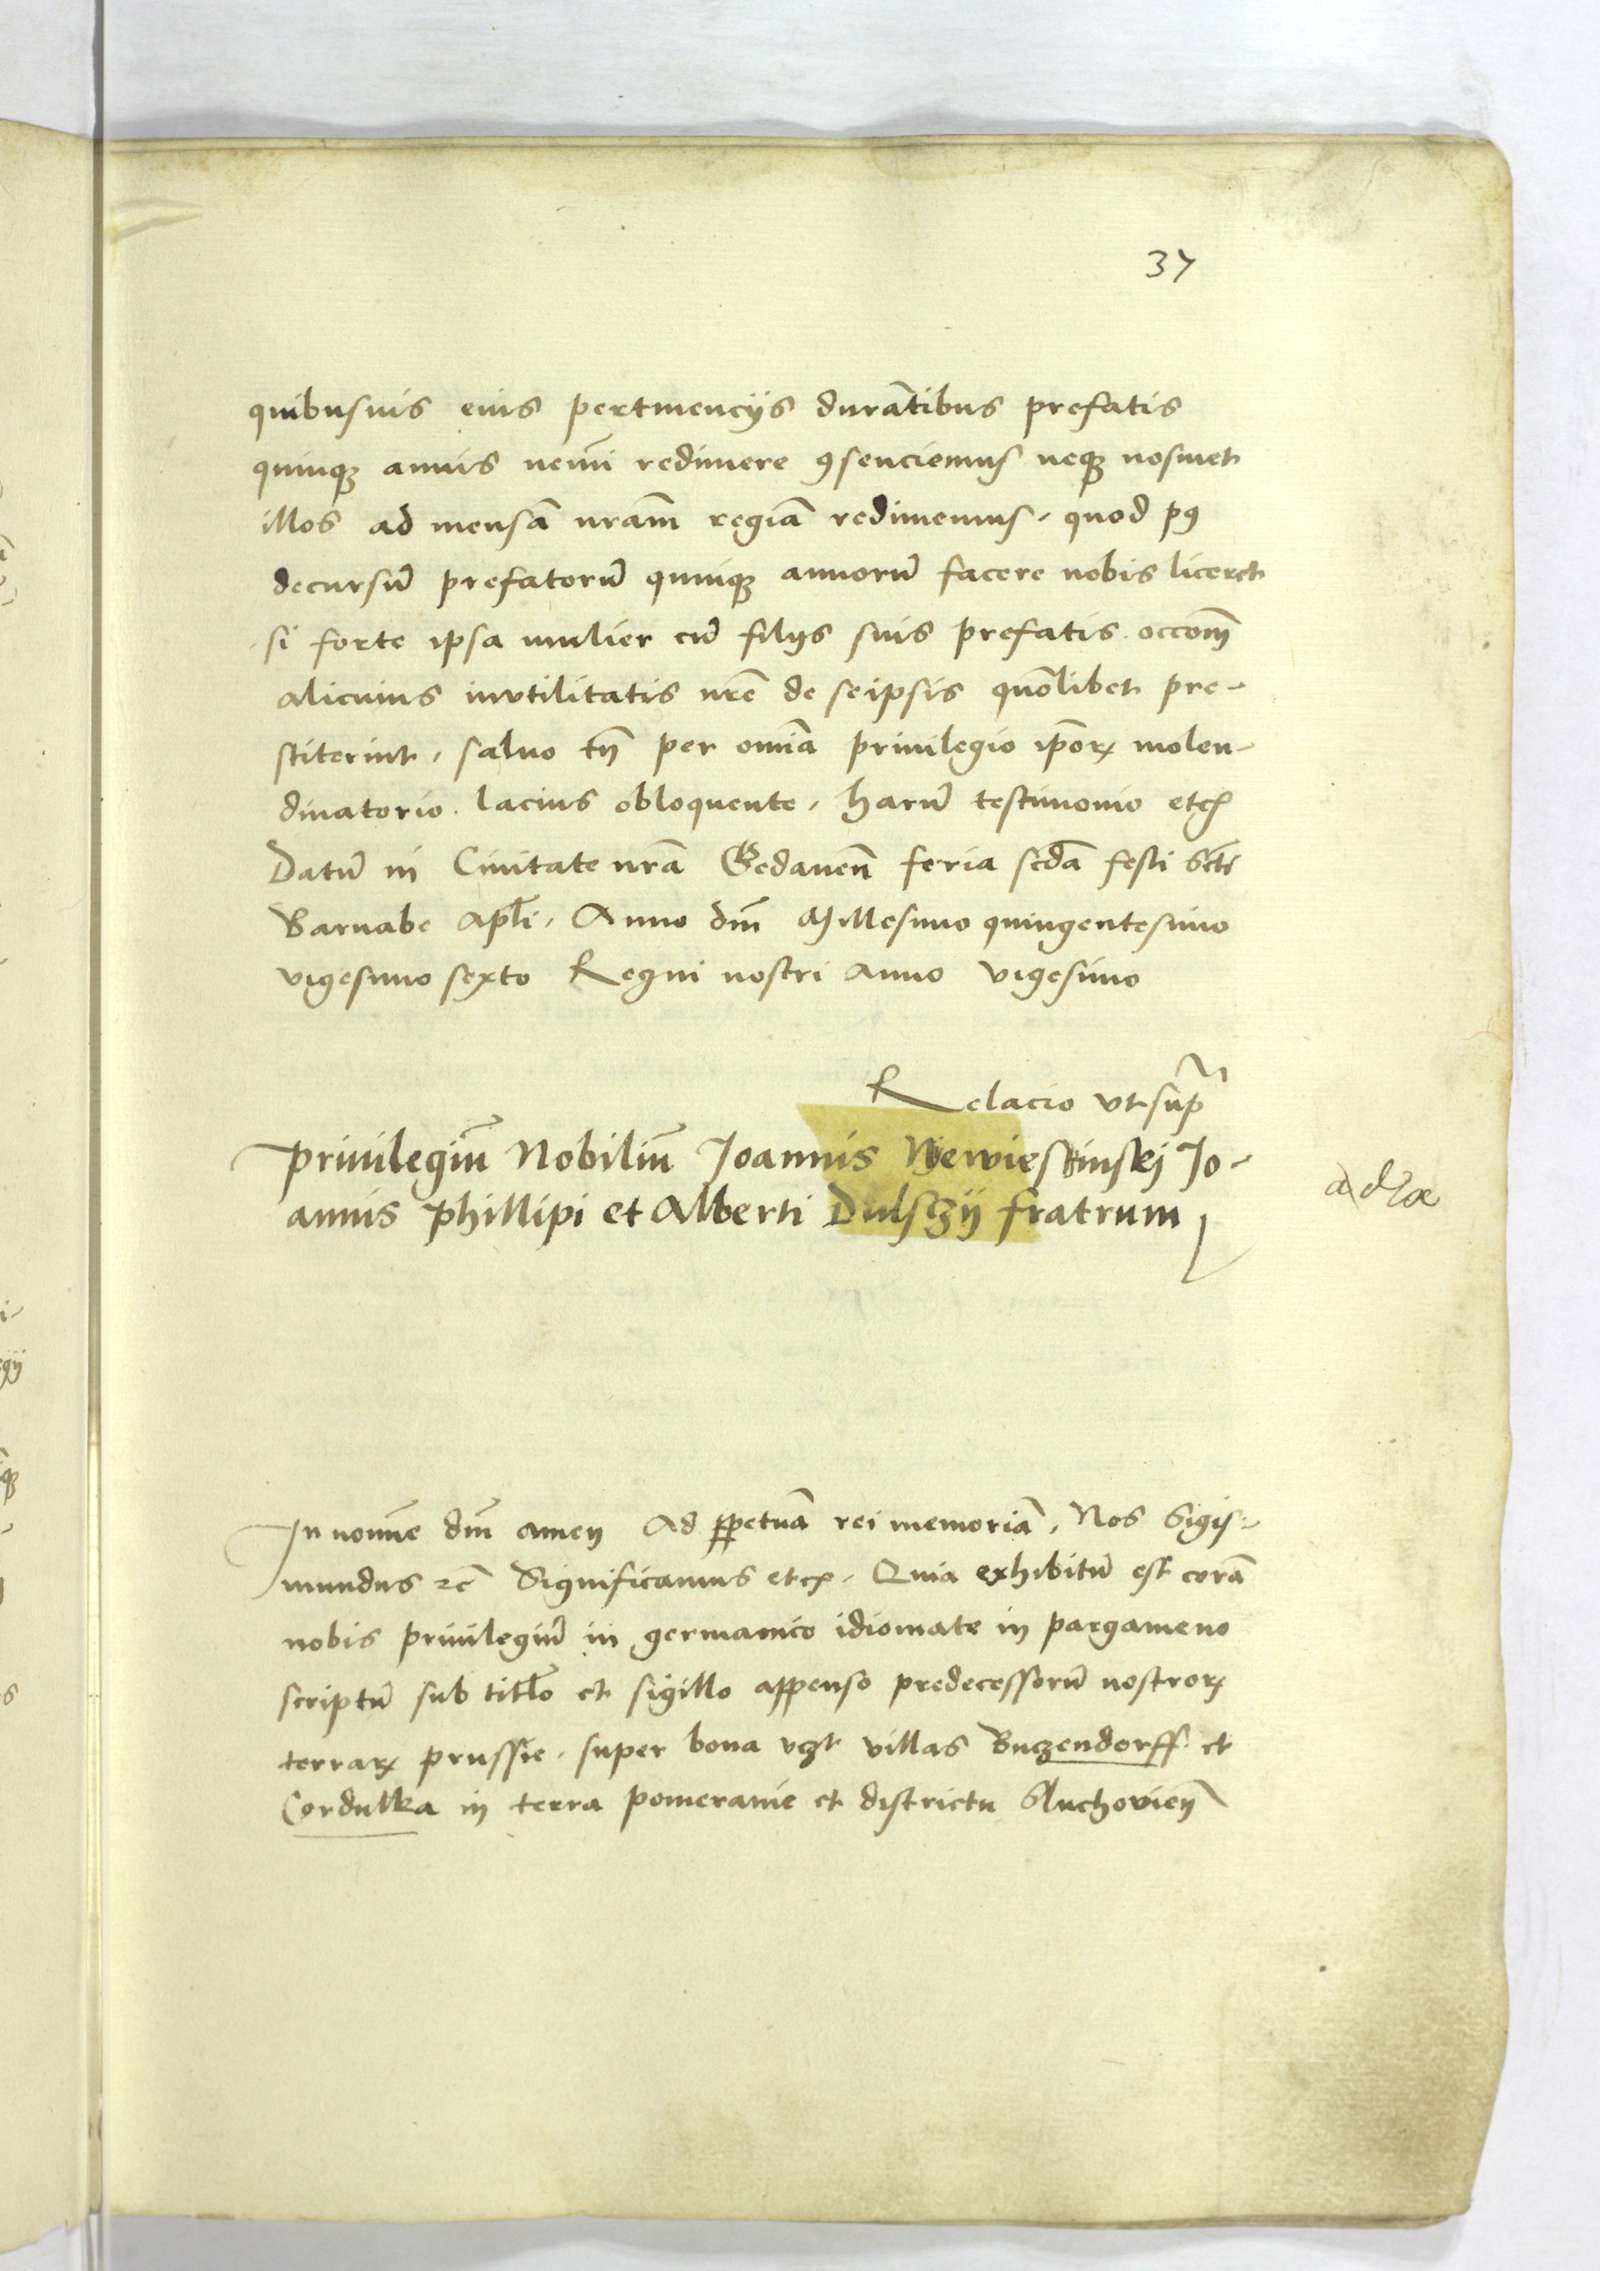 37
quibusuis eius pertinencijs durātibus prefatis
quinqꝫ annis nemī redimere ꝯsenciemus neqꝫ nosmet
illos ad mensā nrām regiā redimemus, quod pꝯ
decursū prefatorū quinqꝫ annorū facere nobis liceret
si forte ipsa mulier cū filijs suis prefatis occom̄
alicuius invtilitatis nrē de seipsis quōlibet pre-
stiterint, saluo tn̄ per omīa priuilegio ip̄oꝝ molen-
dinatorio lacius obloquente, harū testimonio etcꝭ
Datū in Ciuitate nrā Gedanen̄ feria scdā festi scti
Barnabe apl̄i, Anno dn̄i Millesimo quingentesimo
vigesimo sexto Regni nostri anno vigesimo
Relacio vt supᵃ
Priuilegiū Nobiliū Joannis Nyewiestinskj Jo-
annis Phillipi et Alberti Dulsczij fratrum
In nomīe dn̄i amen Ad ꝑpetuā rei memoriā, Nos Sigis-
mundus ꝛc̄ Significamus etcꝭ, Quia exhibitū est corā
nobis priuilegiū in germanico idiomate in pargameno
scriptū sub titl̄o et sigillo appenso predecessorū nostroꝝ
terraꝝ prussie, super bona vꝫt villas Buczendorff et
Cordulka in terra pomeranie et districtu Sluchovien̄